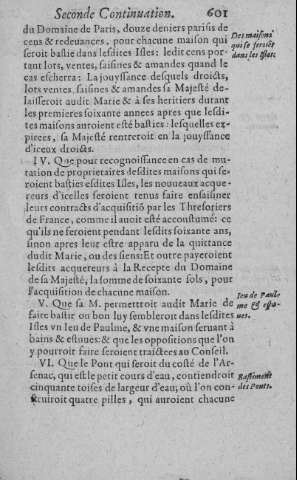 Seconde Continuation. 601
du Domaine de Paris, douze deniers parisis de
cens & redeuances, pour chacune maison qui
seroit bastie dans lesdites Isles: ledit cens por-
tant lors, ventes, saisines & amandes quand le
cas escherra: La jouyssance desquels droicts,
lors ventes, saisines & amandes sa Majesté de-
laisseroit audit Marie & à ses heritiers durant
les premieres soixante annees apres que lesdi-
tes maisons auroient esté basties: lesquelles ex-
pirees, sa Majesté rentreroit en la jouyssance
d'iceux droicts.
Des maisons
qui se feroiẽt
dans les Isles.
IV. Que pour recognoissance en cas de mu-
tation de proprietaires desdites maisons qui se-
roient basties esdites Isles, les nouueaux acque-
reurs d'icelles seroient tenus faire ensaisiner
leurs contracts d'acquisitiõ par les Thresoriers
de France, comme il auoit esté accoustumé: ce
qu'ils ne feroient pendant lesdits soixante ans,
sinon apres leur estre apparu de la quittance
dudit Marie, ou des siens: Et outre payeroient
lesdits acquereurs à la Recepte du Domaine
de sa Majesté, la somme de soixante sols, pour
l'acquisition de chacune maison.
V. Que sa M. permettroit audit Marie de
faire bastir où bon luy sembleroit dans lesdites
Isles vn Ieu de Paulme, & vne maison seruant à
bains & estuues: & que les oppositions que l'on
y pourroit faire seroient traictees au Conseil.
Ieu de Paul-
me & estu-
ues.
VI. Que le Pont qui seroit du costé de l'Ar-
senac, qui est le petit cours d'eau, contiendroit
cinquante toises de largeur d'eau, où l'on con-
struiroit quatre pilles, qui auroient chacune
Bastiment
des Ponts.